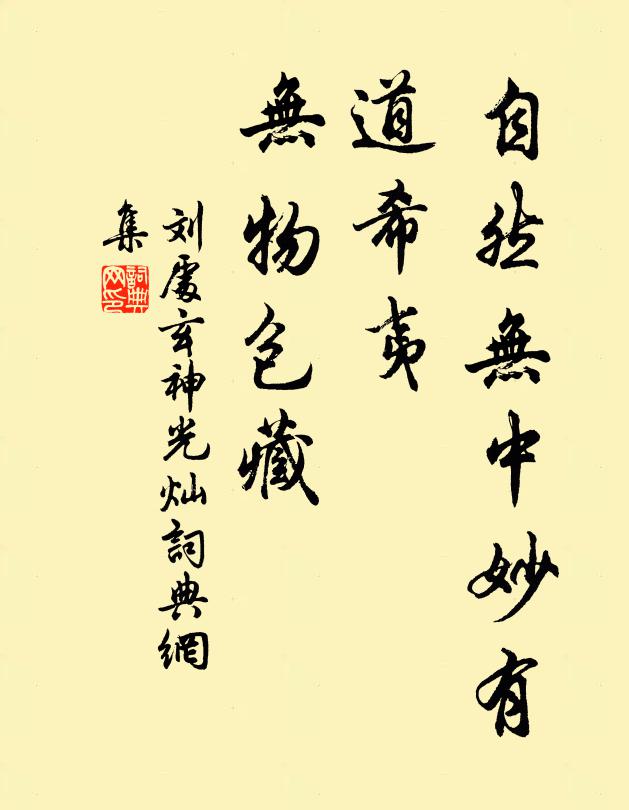 自然無中妙有
道希夷
無物包藏
刘處玄神光灿詞典網
集
詞典
网印